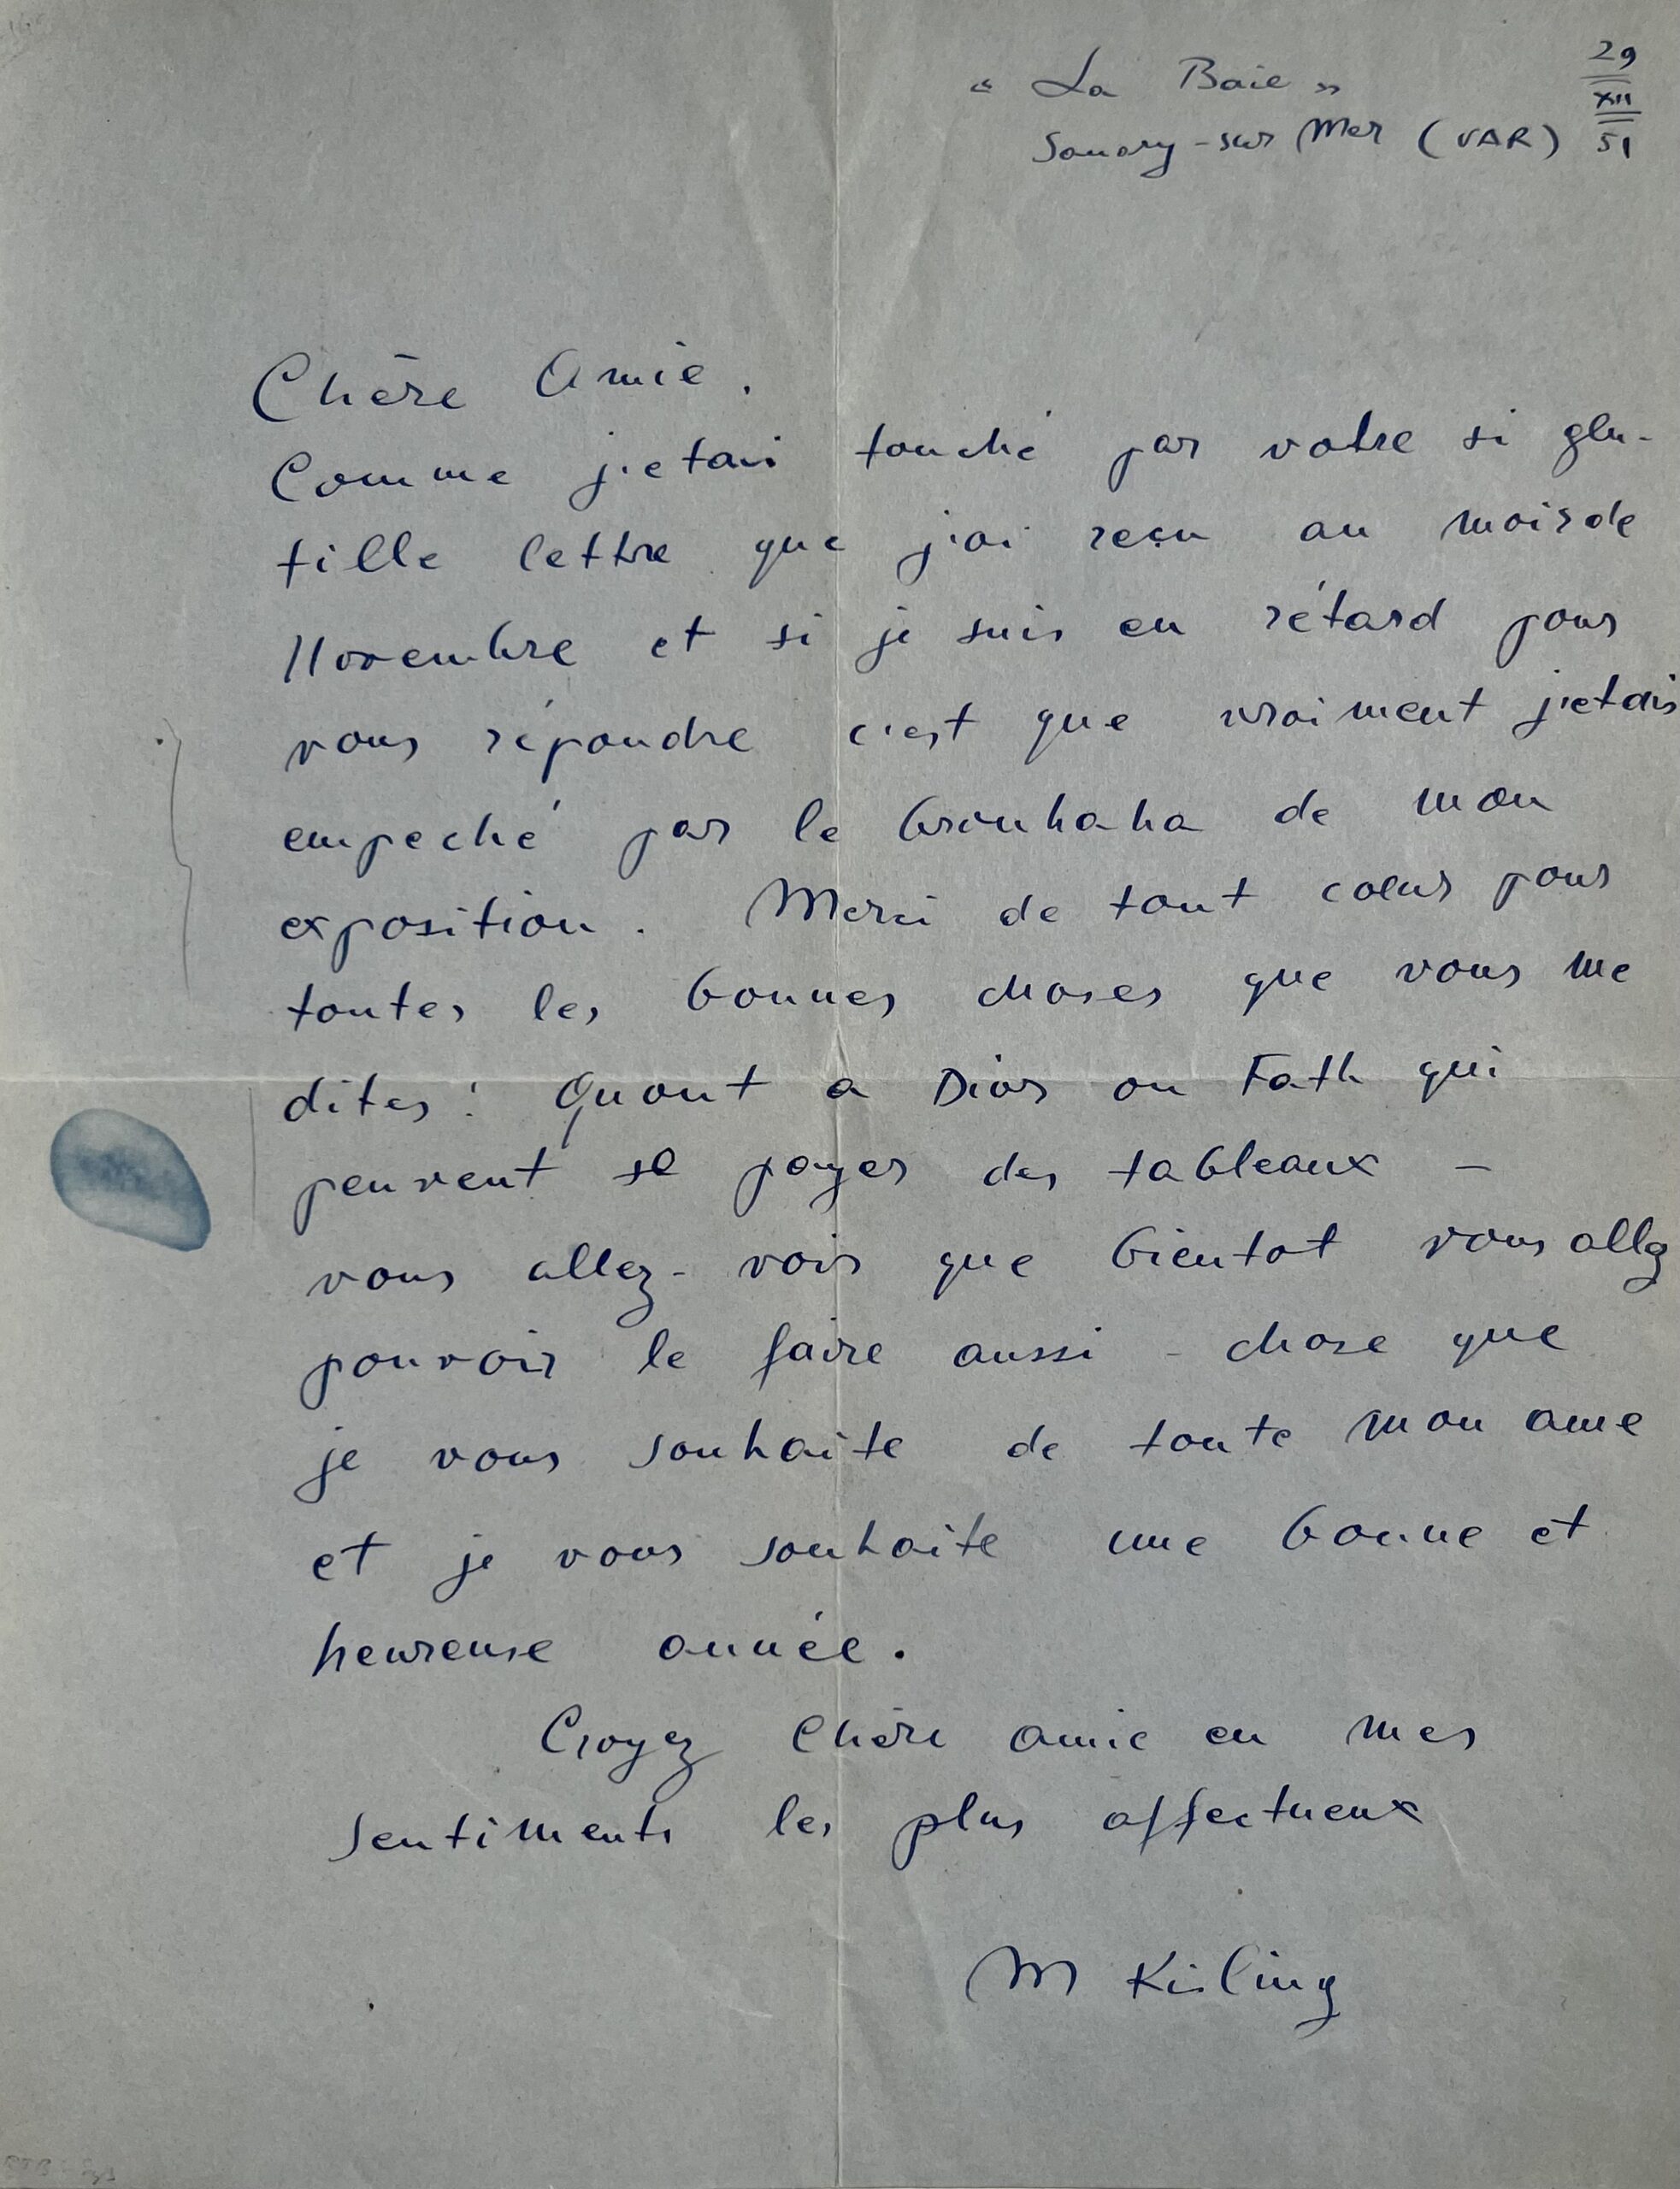 " La Baie "
29
XII
51
Sanary-sur Mer (VAR)
Chère Amie.
Comme j'etais touché par votre si gen-
tille lettre que j'ai reçu au mois de
Novembre et si je suis en rétard pour
vous répondre c'est que vraiment j'etais
empeché par le brouhaha de mon
exposition. Merci de tout coeur pour
toutes les bonnes choses que vous me
dites! Quant a Dior ou Fath qui
peuvent se payer des tableaux –
vous allez- voir que bientot vous allez
pouvoir le faire aussi – chose que
je vous souhaite de toute mon ame
et je vous souhaite une bonne et
heureuse année.
Croyez Chère amie en mes
sentiments les plus affectueux
M Kisling